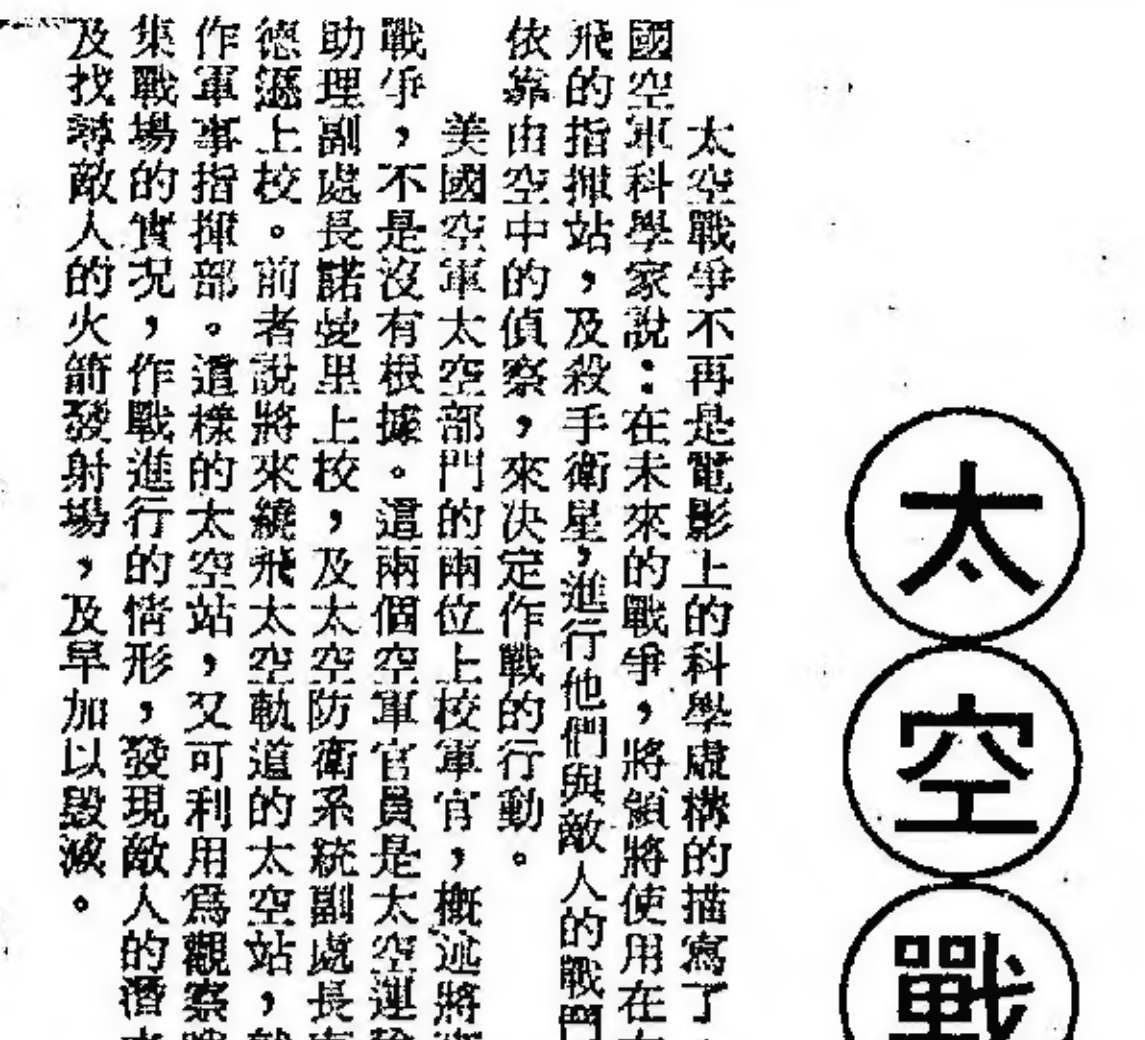 太空戰
太空戰爭不再是電影上的科學虛構的描寫了
國空軍科學家說：在未來的戰爭，將領將使用在
飛的指揮站，及殺手衛星，進行他們與敵人的戰鬥
依靠由空中的偵察，來決定作戰的行動。
美國空軍太空部門的兩位上校軍官，概述將
戰爭，不是沒有根據。這兩個空軍官員是太空運
助理副處長諾曼里上校，及太空防衛系統副處長
德遜上校。前者說將來繞飛太空軌道的太空站，
作軍事指揮部。這樣的太空站，又可利用爲觀察
集戰場的實况，作戰進行的情形，發現敵人的潛
及找尋敵人的火箭發射場，及早加以毀滅。